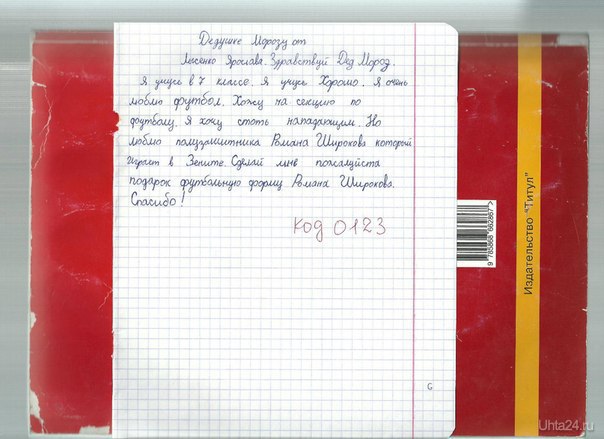 Дедушке Морозу от
Лысенко Ярослава. Здравствуй Дед Мороз.
Я учусь в 7 классе. Я учусь Хорошо. Я очень
люблю футбол. Хожу на секцию по
футболу. Я хочу стать нападающим. Но
люблю полузащитника Романа Широкова который
играет в Зените. Сделай мне пожалуйста
подарок футбольную форму Романа Широкова.
Спасибо!
код 0123
6
Издательство "Титул"
9 785868 662867
Uhta24.ru